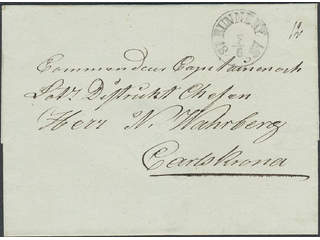 RUNNEBY
Commendeur Capitainen och
Lots Distrikt Chefen
Herr N. Wahrberg
Carlskrona